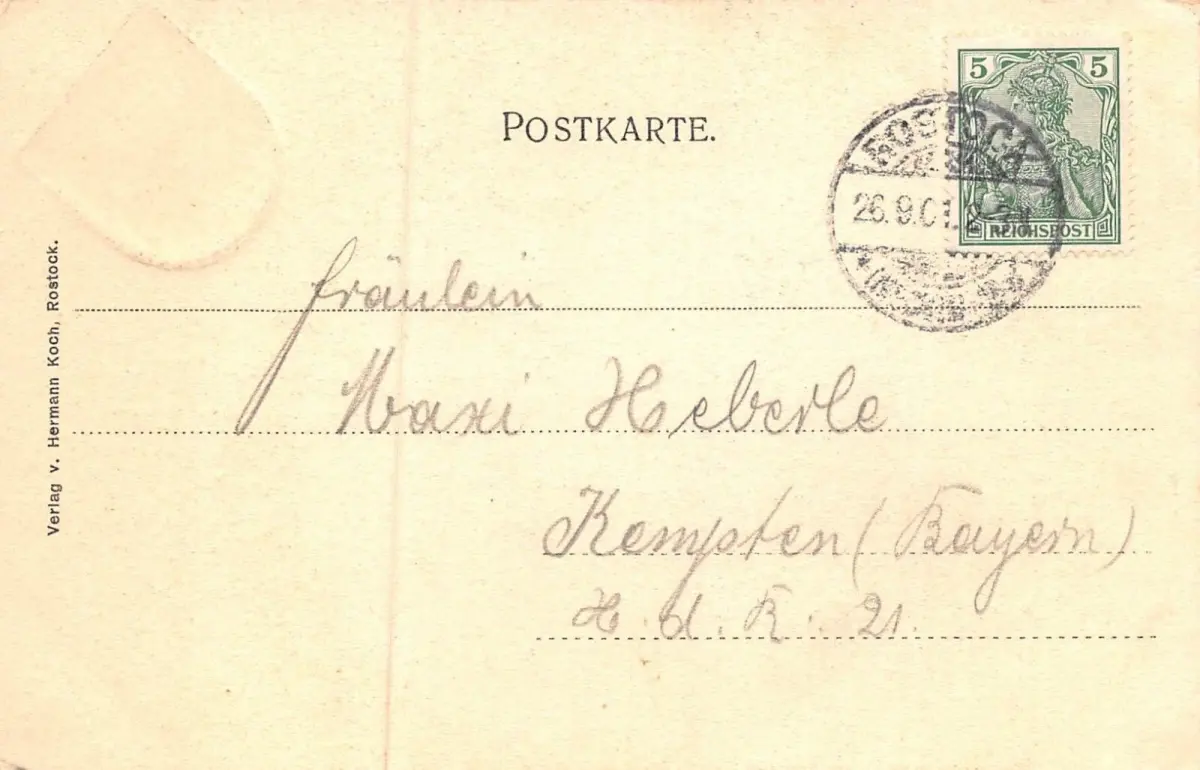 POSTKARTE.
5 5
REICHSPOST
ROSTOCK
26.9.01.
Fräulein
Maxi Heberle
Kempten (Bayern)
H. d. R. 21.
Verlag v. Hermann Koch, Rostock.